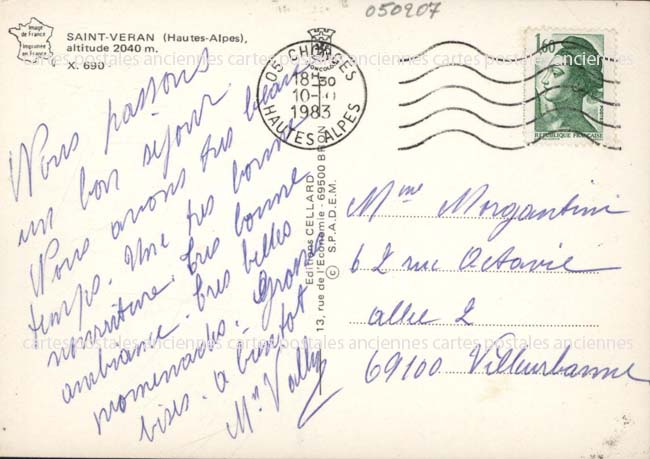 050207
Image
de France
Imprimée
en France
SAINT-VERAN (Hautes-Alpes),
altitude 2040 m.
X. 690
05 CHORGES
18H30
10-
1983
HAUTES ALPES
1,60
REPUBLIQUE FRANÇAISE
Nous passons
un bon séjour
Nous avons très beau
temps. Une très bonne
nourriture. très bonne
ambiance. très belles
promenades. Grosses
bises. a bientôt
Mme Vally
Editions CELLARD
13, rue de l'Economie - 69500 BRON
© S.P.A.D.E.M.
Mme Morgantini
62 rue Octavie
allée 2
69100 Villeurbanne
cartes postales anciennes cartes postales anciennes cartes postales anciennes